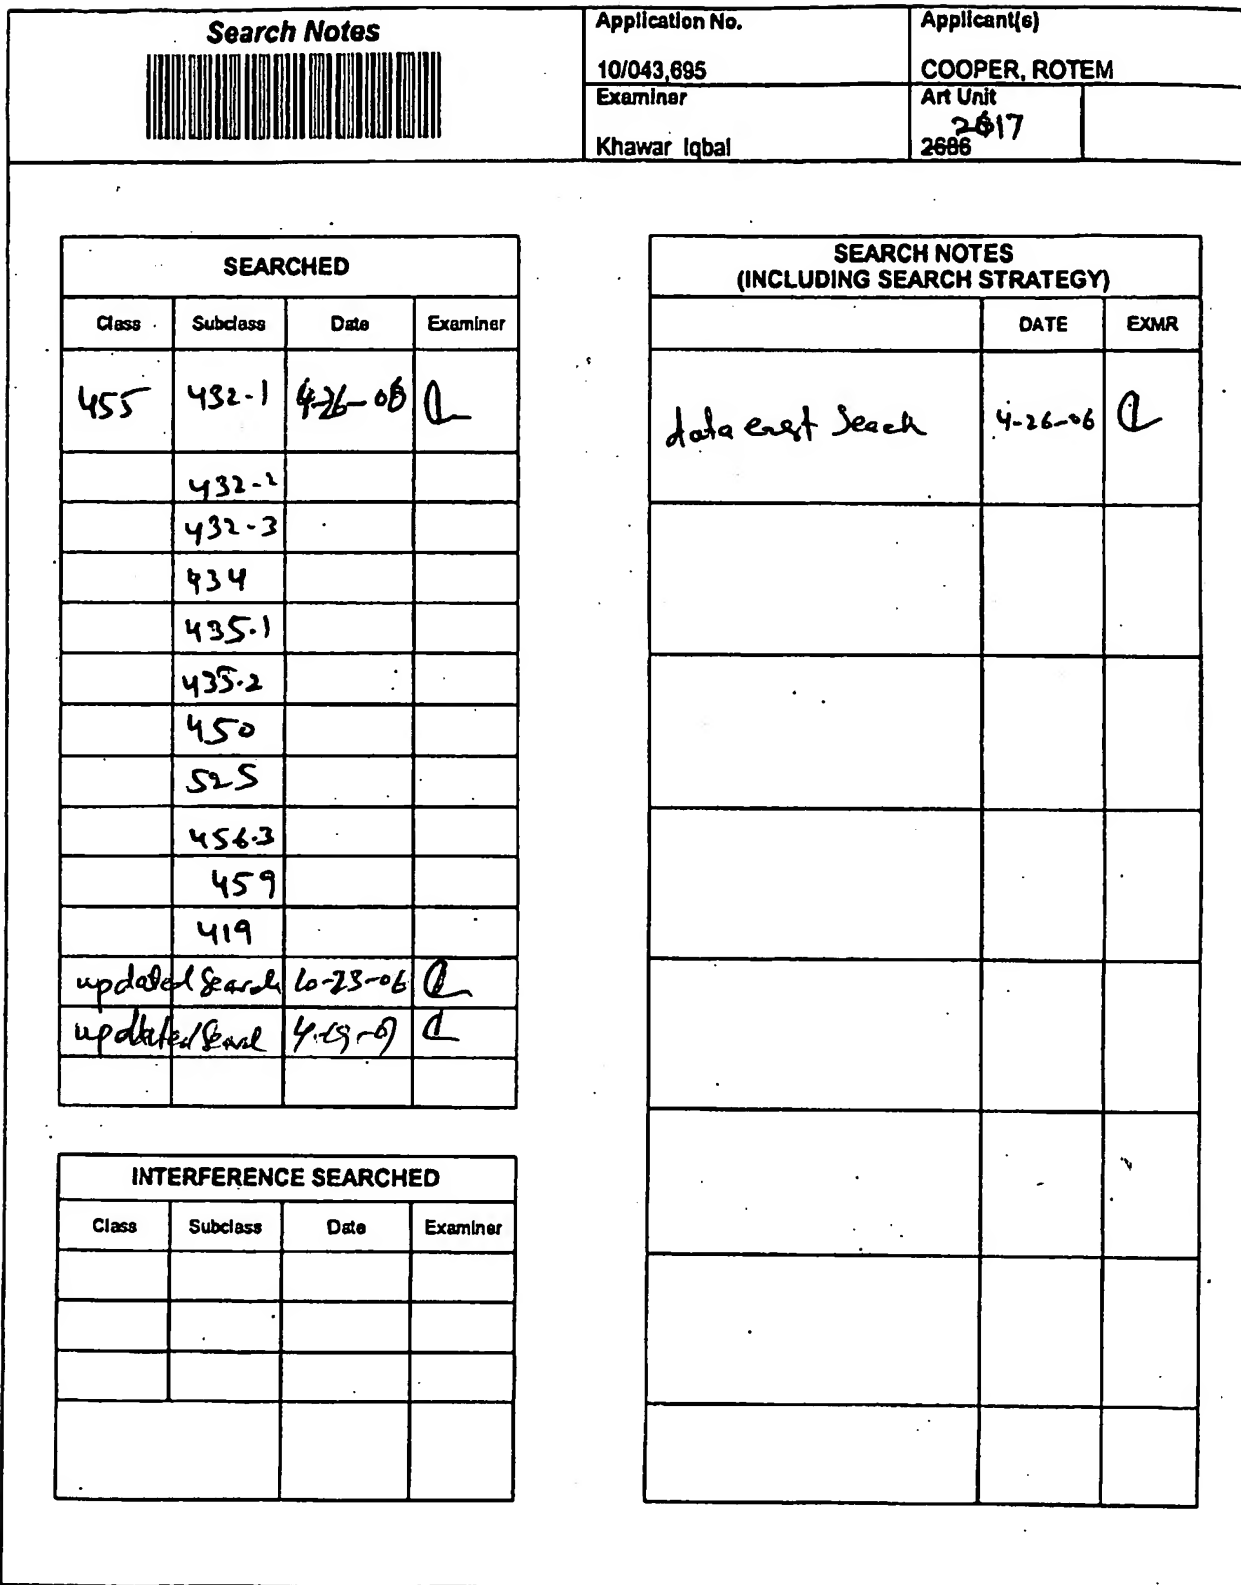 Search Notes
Application No.
10/043,695
Applicant(s)
COOPER, ROTEM
Examiner
Khawar Iqbal
Art Unit
2617
2686
SEARCHED
Class Subclass Date Examiner
455 432-1 4-26-06
432-2
432-3
434
435.1
435.2
450
525
456.3
459
419
updated Search 10-23-06
updated
INTERFERENCE SEARCHED
Class Subclass Date Examiner
SEARCH NOTES
(INCLUDING SEARCH STRATEGY)
DATE EXMR
data 4-26-06